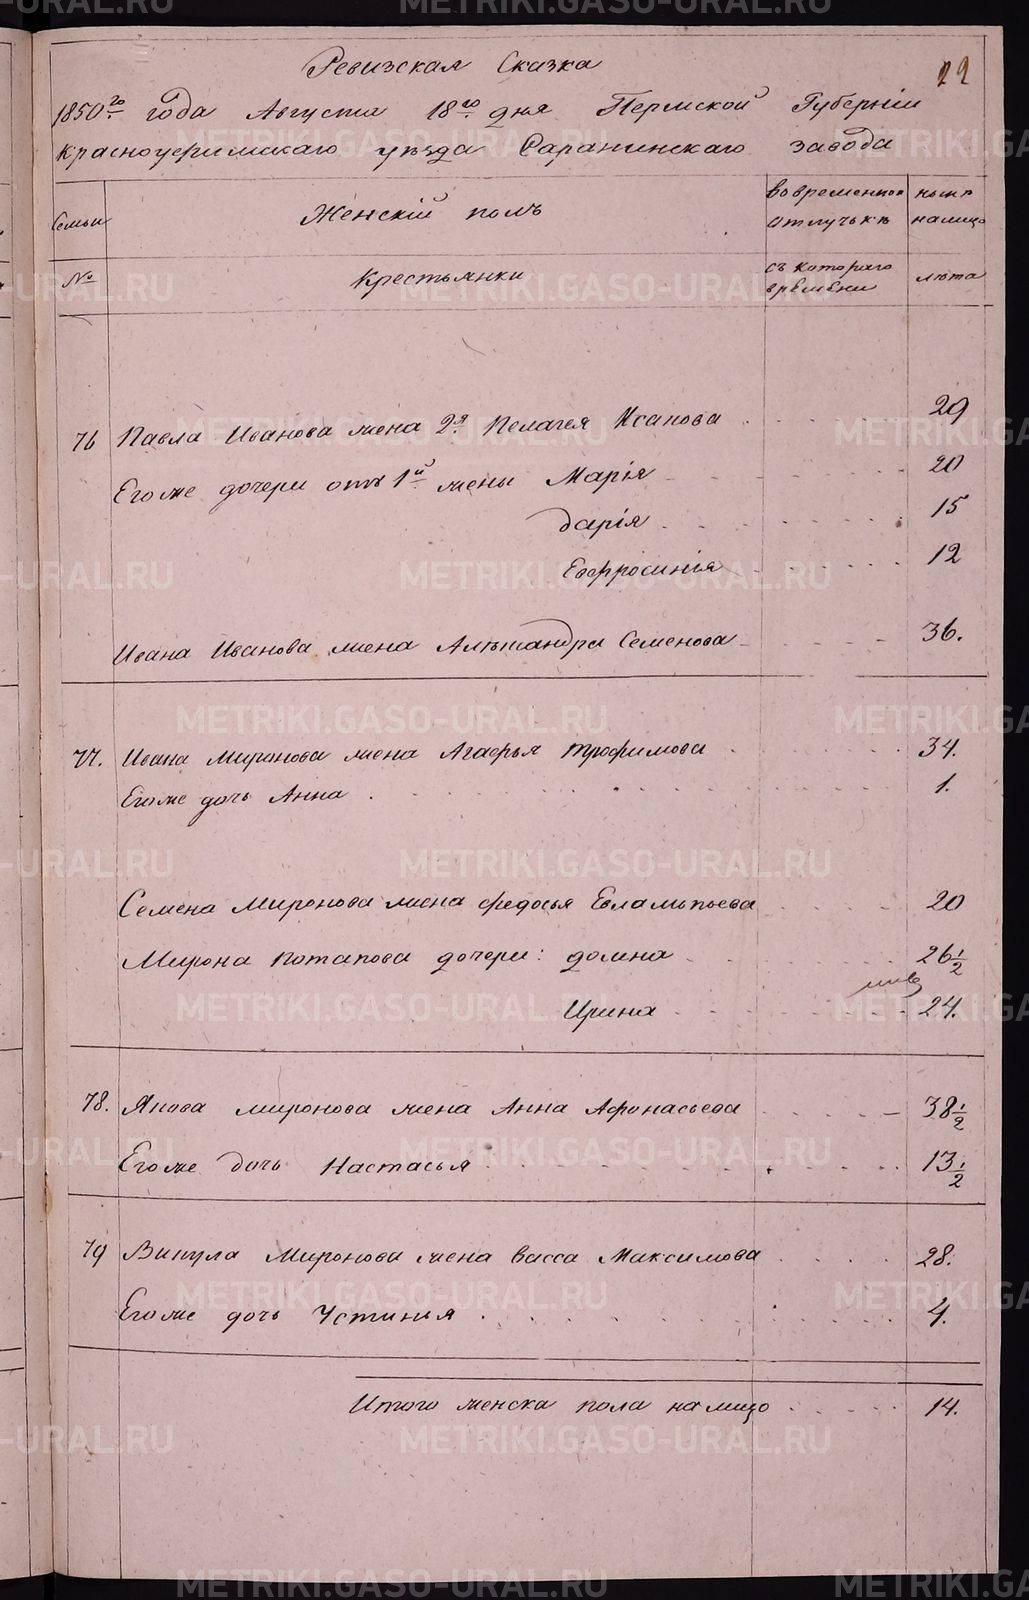 22
Ревизская Сказка
1850го года Августа 18го дня Пермской Губерніи
Красноуфимскаго уѣзда Саранинскаго завода
Семьи
Женскій полъ
во временной отлучькѣ
нынѣ на лицо
№
Крестьянки
съ котораго времѣни
лѣта
76 Павла Иванова жена 2я Пелагея Исакова 29
Его же дочери отъ 1й жены Марія 20
Дарія 15
Евфросинія 12
Ивана Иванова жена Алѣксандра Семенова 36.
77. Ивана Миронова жена Агафья Трофимова 34.
Его же дочь Анна 1.
Семена Миронова жена Федосья Евлампьева 20
Мирона Потапова дочери: Домна 26½
Ирина 24.
78. Якова Миронова жена Анна Афонасьева 38½
Его же дочь Настасья 13½
79 Викула Миронова жена Васса Максимова 28.
Его же дочь Устинья 4.
Итого женска пола на лицо 14.
METRIKI.GASO-URAL.RU